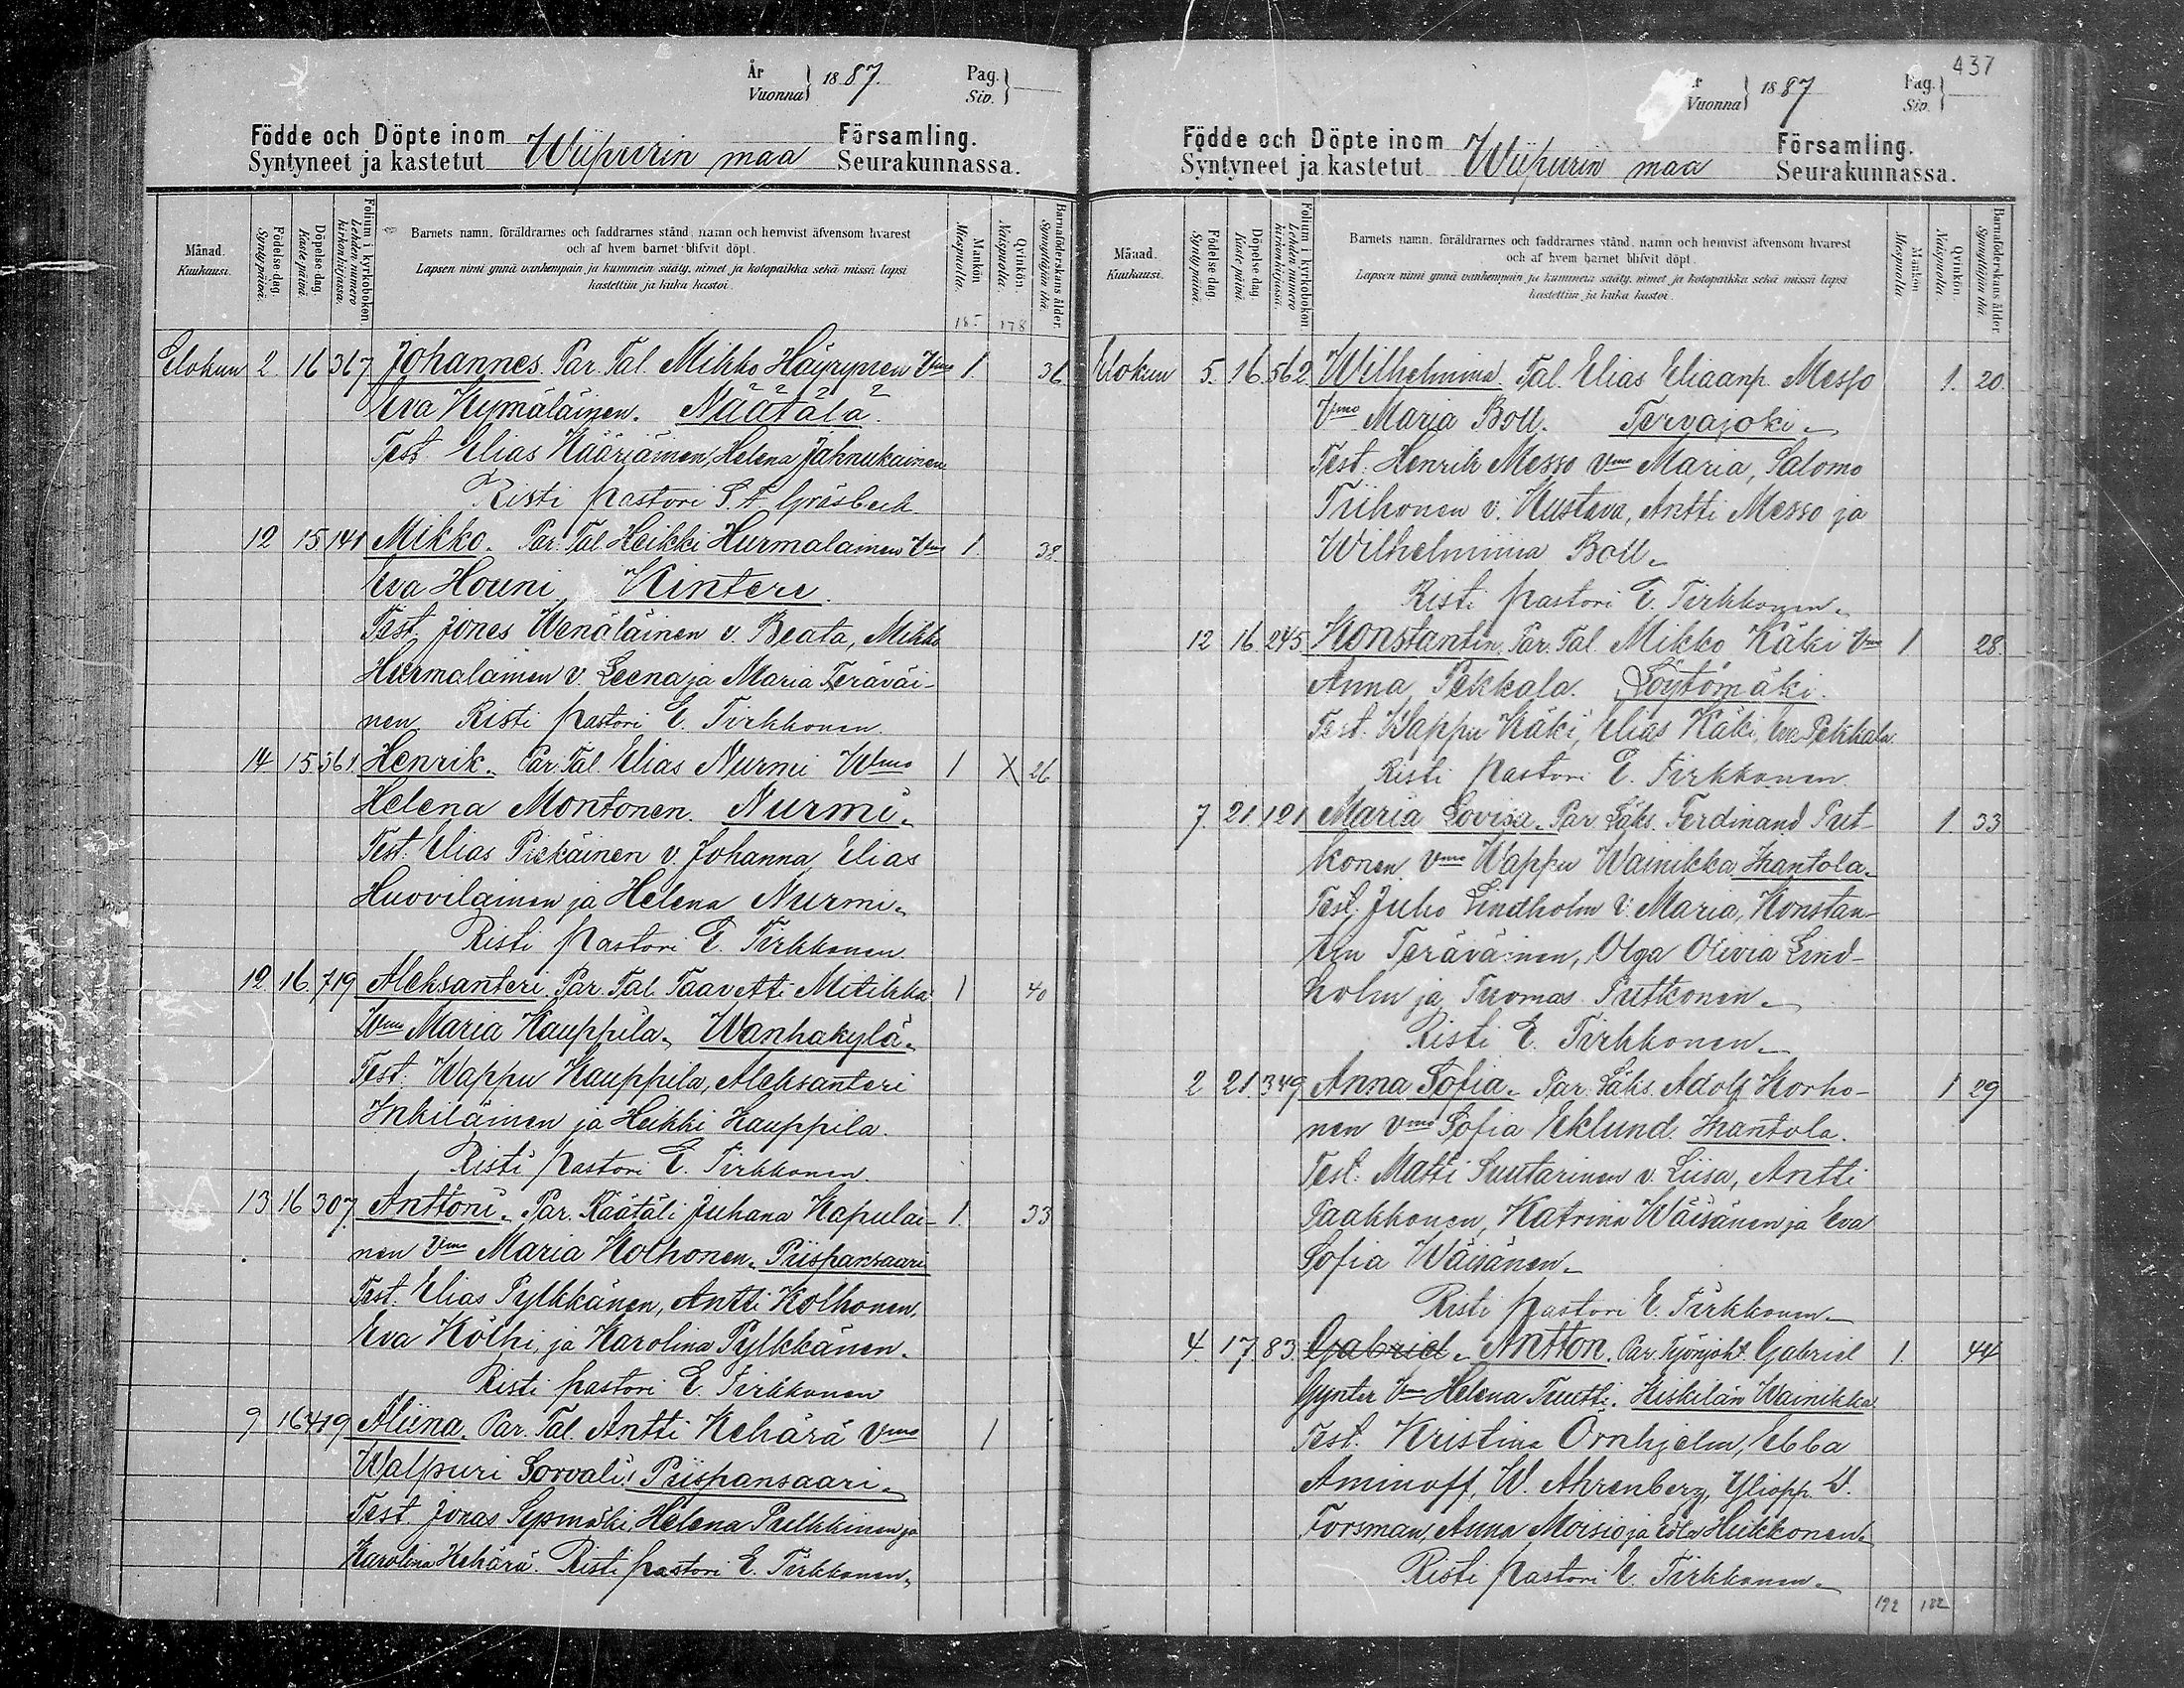 År
Vuonna } 1887.
Pag.
Siv. }
Födde och Döpte inom
Syntyneet ja kastetut Wiipurin maa
Församling.
Seurakunnassa.
Månad.
Kuukausi.
Födelse dag.
Synty päivä.
Döpelse dag.
Kaste päivä.
Folium i kyrkoboken.
Lehden numero kirkonkirjassa.
Barnets namn, föräldrarnes och faddrarnes stånd, namn och hemvist äfvensom hvarest
och af hvem barnet blifvit döpt.
Lapsen nimi ynnä vanhempain ja kummein sääty, nimet ja kotopaikka sekä missä lapsi
kastettiin ja kuka kastoi.
Mankön.
Miespuolia.
Qvinkön.
Naispuolia.
Barnaföderskans ålder.
Synnyttäjän ikä.
185 178
Elokuu 2. 16 367 Johannes. Par. Tal. Mikko Häyrynen Vmo 1. 36
Eva Kymäläinen. Näätälä.
Test. Elias Kääriäinen, Helena Jäknukainen
Risti pastori S. F. Gräsbeck
12 15 141 Mikko. Par. Tal. Heikki Hurmalainen Vmo 1 38.
Eva Houni. Kintere.
Test. Jonas Wenäläinen v. Beata, Mikko
Hurmalainen v. Leena ja Maria Teräväi-
nen. Risti pastori E. Tirkkonen.
14 15. 361. Henrik. Par. Tal. Elias Nurmi Wmo 1 X 26
Helena Montonen. Nurmi.
Test. Elias Piekäinen v. Johanna, Elias
Huovilainen ja Helena Nurmi.
Risti pastori E. Tirkkonen.
12. 16. 719 Aleksanteri. Par. Tal. Taavetti Mitikka 1 40
Wmo Maria Kauppila. Wanhakylä.
Test. Wappu Kauppila, Aleksanteri
Inkiläinen ja Heikki Kauppila.
Risti pastori E. Tirkkonen.
13 16 307 Anttoni. Par. Räätäli Juhana Kapulai- 1. 33
nen Vmo Maria Kolhonen. Piispansaari
Test. Elias Pylkkänen, Antti Kolhonen,
Eva Kölhi, ja Karolina Pylkkänen.
Risti pastori E. Tirkkonen
9 16 419 Aliina. Par. Tal. Antti Kehärä Vmo 1
Walpuri Sorvali. Piispansaari.
Test. Jonas Sepmäki, Helena Pulkkinen ja
Karolina Kehärä. Risti pastori E. Tirkkonen.
437
Vuonna } 1887
Pag.
Siv. }
Födde och Döpte inom
Syntyneet ja kastetut Wiipurin maa
Församling.
Seurakunnassa.
Månad.
Kuukausi.
Födelse dag.
Synty päivä.
Döpelse dag.
Kaste päivä.
Folium i kyrkoboken.
Lehden numero kirkonkirjassa.
Barnets namn, föräldrarnes och faddrarnes stånd, namn och hemvist äfvensom hvarest
och af hvem barnet blifvit döpt.
Lapsen nimi ynnä vanhempain ja kummein sääty, nimet ja kotopaikka sekä missä lapsi
kastettiin ja kuka kastoi.
Mankön
Miespuolia
Qvinkön.
Naispuolia.
Barnaföderskans ålder.
Synnyttäjän ikä.
Elokuu 5. 16. 562 Wilhelmina. Tal. Elias Eliaanp. Messo 1. 20.
Vmo Maria Boll. Tervajoki.
Test. Henrik Messo vmo Maria, Salomo
Tiihonen v. Kustava, Antti Messo ja
Wilhelmiina Boll.
Risti pastori E. Tirkkonen.
12 16. 245. Konstantin. Par. Tal. Mikko Käki Vmo 1 28.
Anna Pekkala. Löytömäki.
Test. Wappu Käki, Elias Käki, Eva Pekkala.
Risti pastori E. Tirkkonen.
7. 21. 121 Maria Lovisa. Par. Läks. Ferdinand Put- 1. 33
konen vmo Wappu Wainikka Imantola.
Test. Juho Lindholm v. Maria, Konstan-
tin Teräväinen, Olga Olivia Lind-
holm ja Tuomas Putkonen.
Risti E. Tirkkonen.
2 21. 349 Anna Sofia. Par. Läks. Adolf Korho- 1 29
nen vmo Sofia Eklund. Imantola.
Test. Matti Suutarinen v. Liisa, Antti
Paakkonen, Katrina Wäisänen ja Eva
Sofia Wäisänen.
Risti pastori E. Tirkkonen.
4. 17. 83. Gabriel. Antton. Par. Työnjoht. Gabriel 1. 44
Gynter Vmo Helena Tuutti. Kiskilän Wainikka
Test. Kristina Örnhjelm, Ebba
Aminoff, W. Ahrenberg, Yliopp. V.
Forsman, Anna Moisio ja Edla Heikkonen.
Risti pastori E. Tirkkonen.
192 182